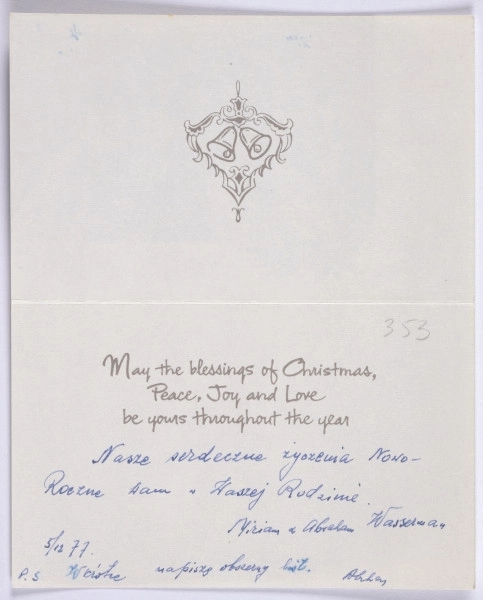 353
May the blessings of Christmas,
Peace, Joy and Love
be yours throughout the year
Nasze serdeczne życzenia Nowo-
Roczne Wam i Waszej Rodzinie.
Miriam i Abraham Wasserman
5/12 77.
P.S Wkrótce napiszę obszerny list. Abraham